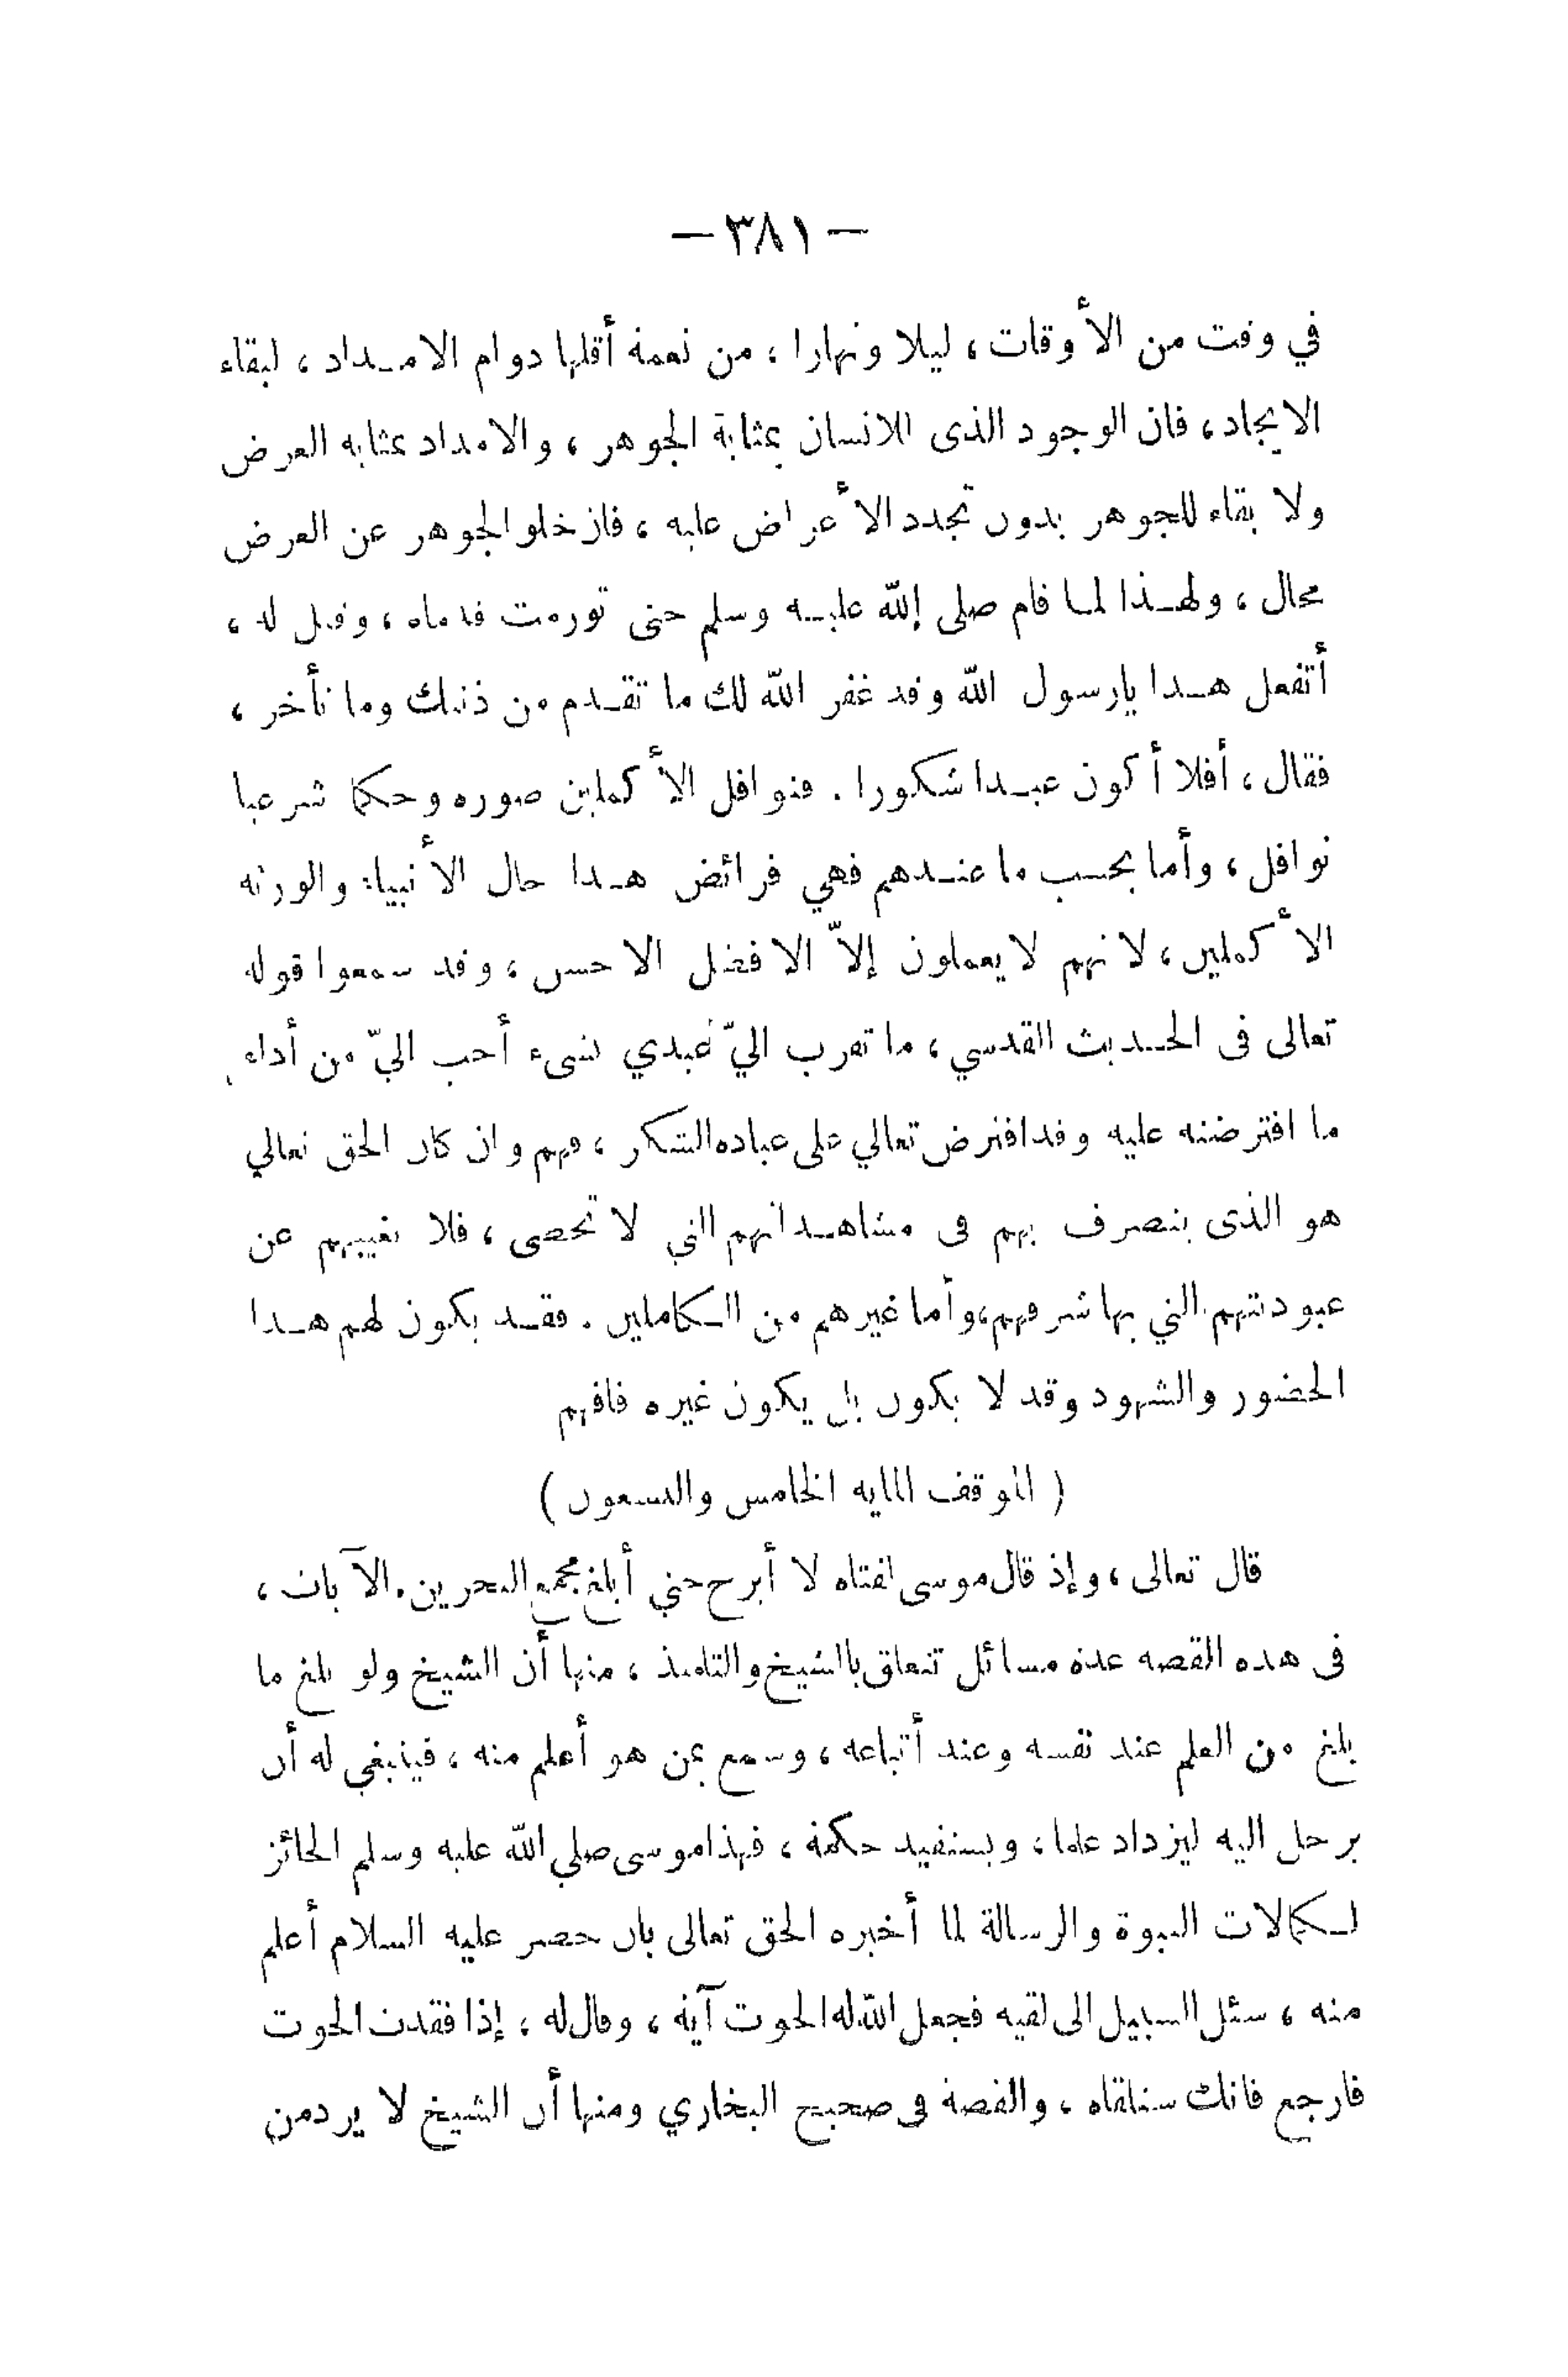 — ٣٨١ —
في وقت من الأوقات ، ليلا ونهارا ، من نعمة أقلها دوام الامـداد ، لبقاء
الايجاد ، فان الوجود الذى للانسان بمثابة الجوهر ، والامداد بمثابة العرض
ولا بقاء للجوهر بدون تجدد الأعراض عليه ، فان خلو الجوهر عن العرض
محال ، ولهـذا لما قام صلى الله عليـه وسلم حتى تورمت قدماه ، وقيل له ،
أتفعل هـذا يارسول الله وقد غفر الله لك ما تقـدم من ذنبك وما تأخر ،
فقال ، أفلا أكون عبـدا شكورا . فنوافل الأكملين صورة وحكما شرعيا
نوافل ، وأما بحسب ما عنـدهم فهي فرائض هـذا حال الأنبياء والورثة
الأكملين ، لانهم لا يعملون إلاّ الافضل الاحسن ، وقد سمعوا قوله
تعالى فى الحـديث القدسي ، ما تقرب اليّ عبدي بشىء أحب اليّ من أداء
ما افترضته عليه وقد افترض تعالي على عباده الشكر ، فهم وان كان الحق تعالي
هو الذى يتصرف بهم فى مشاهـداتهم التي لا تحصى ، فلا يغيبهم عن
عبوديتهم التي بها شرفهم ، وأما غيرهم من الـكاملين . فقـد يكون لهم هـذا
الحضور والشهود وقد لا يكون بل يكون غيره فافهم
( الموقف المايه الخامس والتسعون )
قال تعالى ، وإذ قال موسى لفتاه لا أبرح حتي أبلغ مجمع البحرين . الآيات ،
فى هذه القصه عدة مسائل تتعلق بالشيخ والتلميذ ، منها أن الشيخ ولو بلغ ما
بلغ من العلم عند نفسه وعند أتباعه ، وسمع بمن هو أعلم منه ، فينبغي له أن
يرحل اليه ليزداد علما ، ويستفيد حكمة ، فهذا موسى صلي الله عليه وسلم الحائز
لـكمالات النبوة والرسالة لما أخبره الحق تعالى بان خضر عليه السلام أعلم
منه ، سئل السبيل الى لقيه فجعل الله له الحوت آية ، وقال له ، إذا فقدت الحوت
فارجع فانك ستلقاه ، والقصة فى صحيح البخاري ومنها أن الشيخ لا يرد من